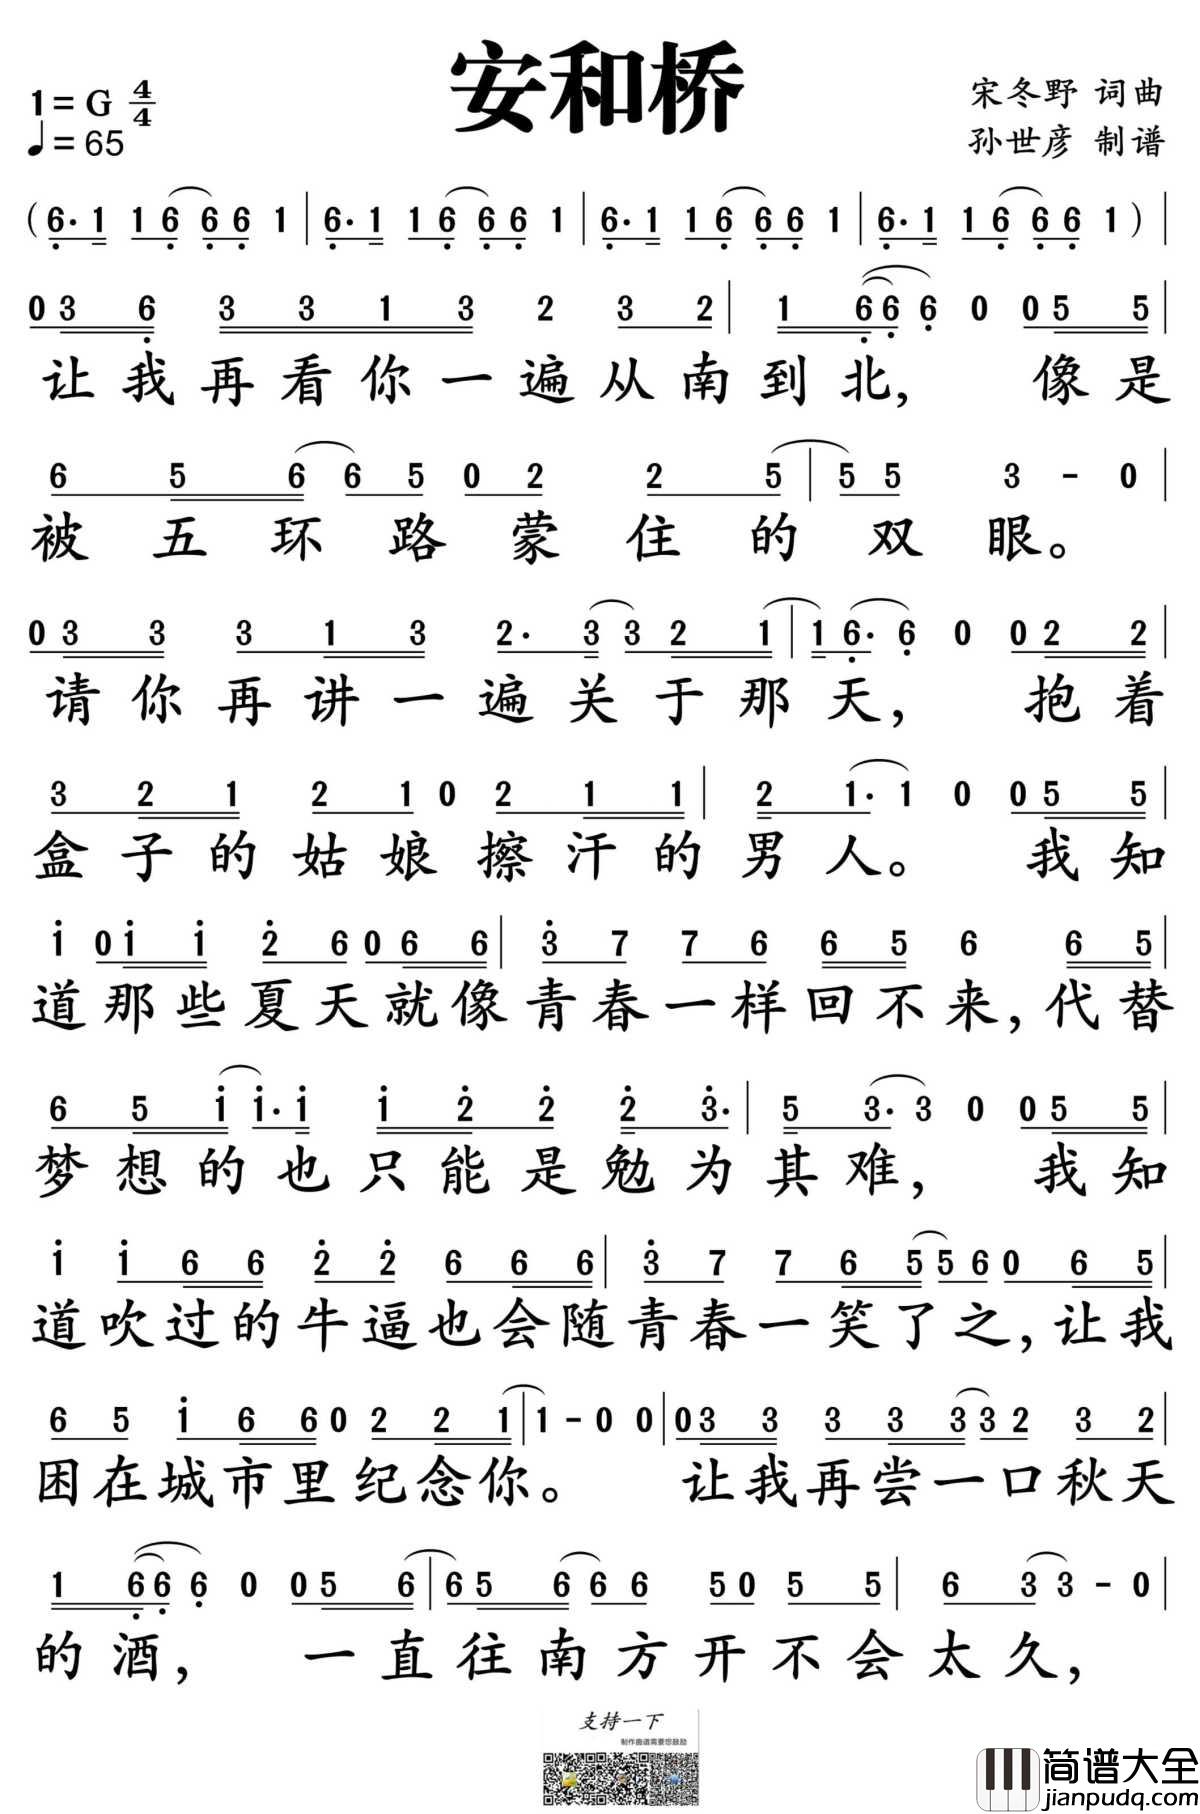 安和桥
1=G 4/4
♩=65
宋冬野 词曲
孙世彦 制谱
(6·1 16 66 1 | 6·1 16 66 1 | 6·1 16 66 1 | 6·1 16 66 1) |
03 6 3 3 1 3 2 3 2 | 1 66 6 0 05 5 |
让我再看你一遍从南到北, 像是
6 5 6 6 5 0 2 2 5 | 5 5 3 - 0 |
被五环路蒙住的双眼。
03 3 3 1 3 2· 3 3 2 1 | 1 6· 6 0 02 2 |
请你再讲一遍关于那天, 抱着
3 2 1 2 1 0 2 1 1 | 2 1· 1 0 05 5 |
盒子的姑娘擦汗的男人。 我知
i 0i i 2 6 06 6 | 3 7 7 6 6 5 6 6 5 |
道那些夏天就像青春一样回不来,代替
6 5 i i· i i 2 2 2 3· | 5 3· 3 0 05 5 |
梦想的也只能是勉为其难, 我知
i i 6 6 2 2 6 6 6 | 3 7 7 6 5 5 6 0 6 5 |
道吹过的牛逼也会随青春一笑了之,让我
6 5 i 6 6 0 2 2 1 | 1 - 0 0 | 03 3 3 3 3 3 2 3 2 |
困在城市里纪念你。 让我再尝一口秋天
1 66 6 0 05 6 | 6 5 6 6 6 5 0 5 5 | 6 3 3 - 0 |
的酒, 一直往南方开不会太久,
支持一下
制作曲谱需要您鼓励
简谱大全
jianpudq.com